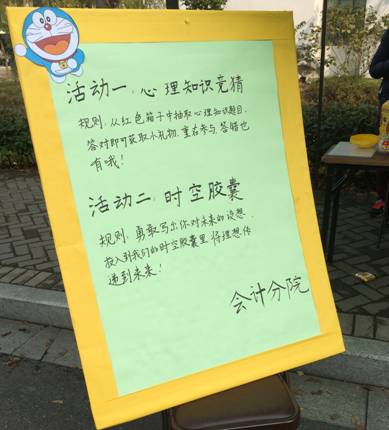 活动一：心理知识竞猜
规则：从红色箱子中抽取心理知识题目，
答对即可获取小礼物，重在参与，答错也
有哦！
活动二：时空胶囊
规则：勇敢写出你对未来的设想，
投入到我们的时空胶囊里，将理想传
递到未来！
会计分院